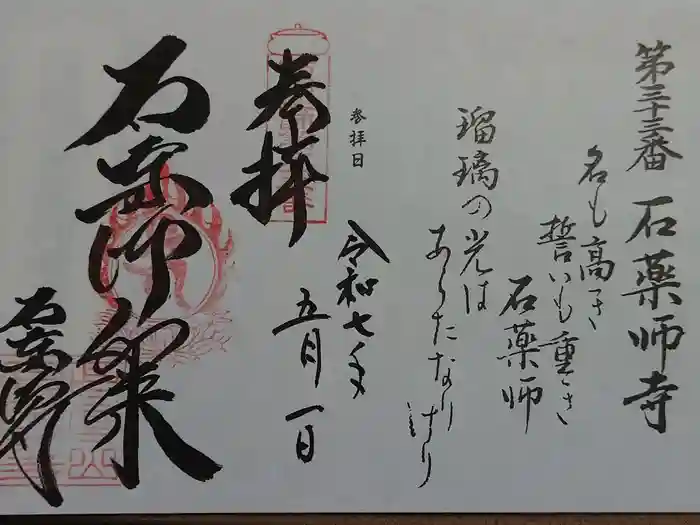 第三十三番 石薬師寺
名も高き
誓いも重き
石薬師
瑠璃の光は
あらたなりけり
参拝日
令和七年
五月一日
奉拝
石薬師如来
石薬師寺